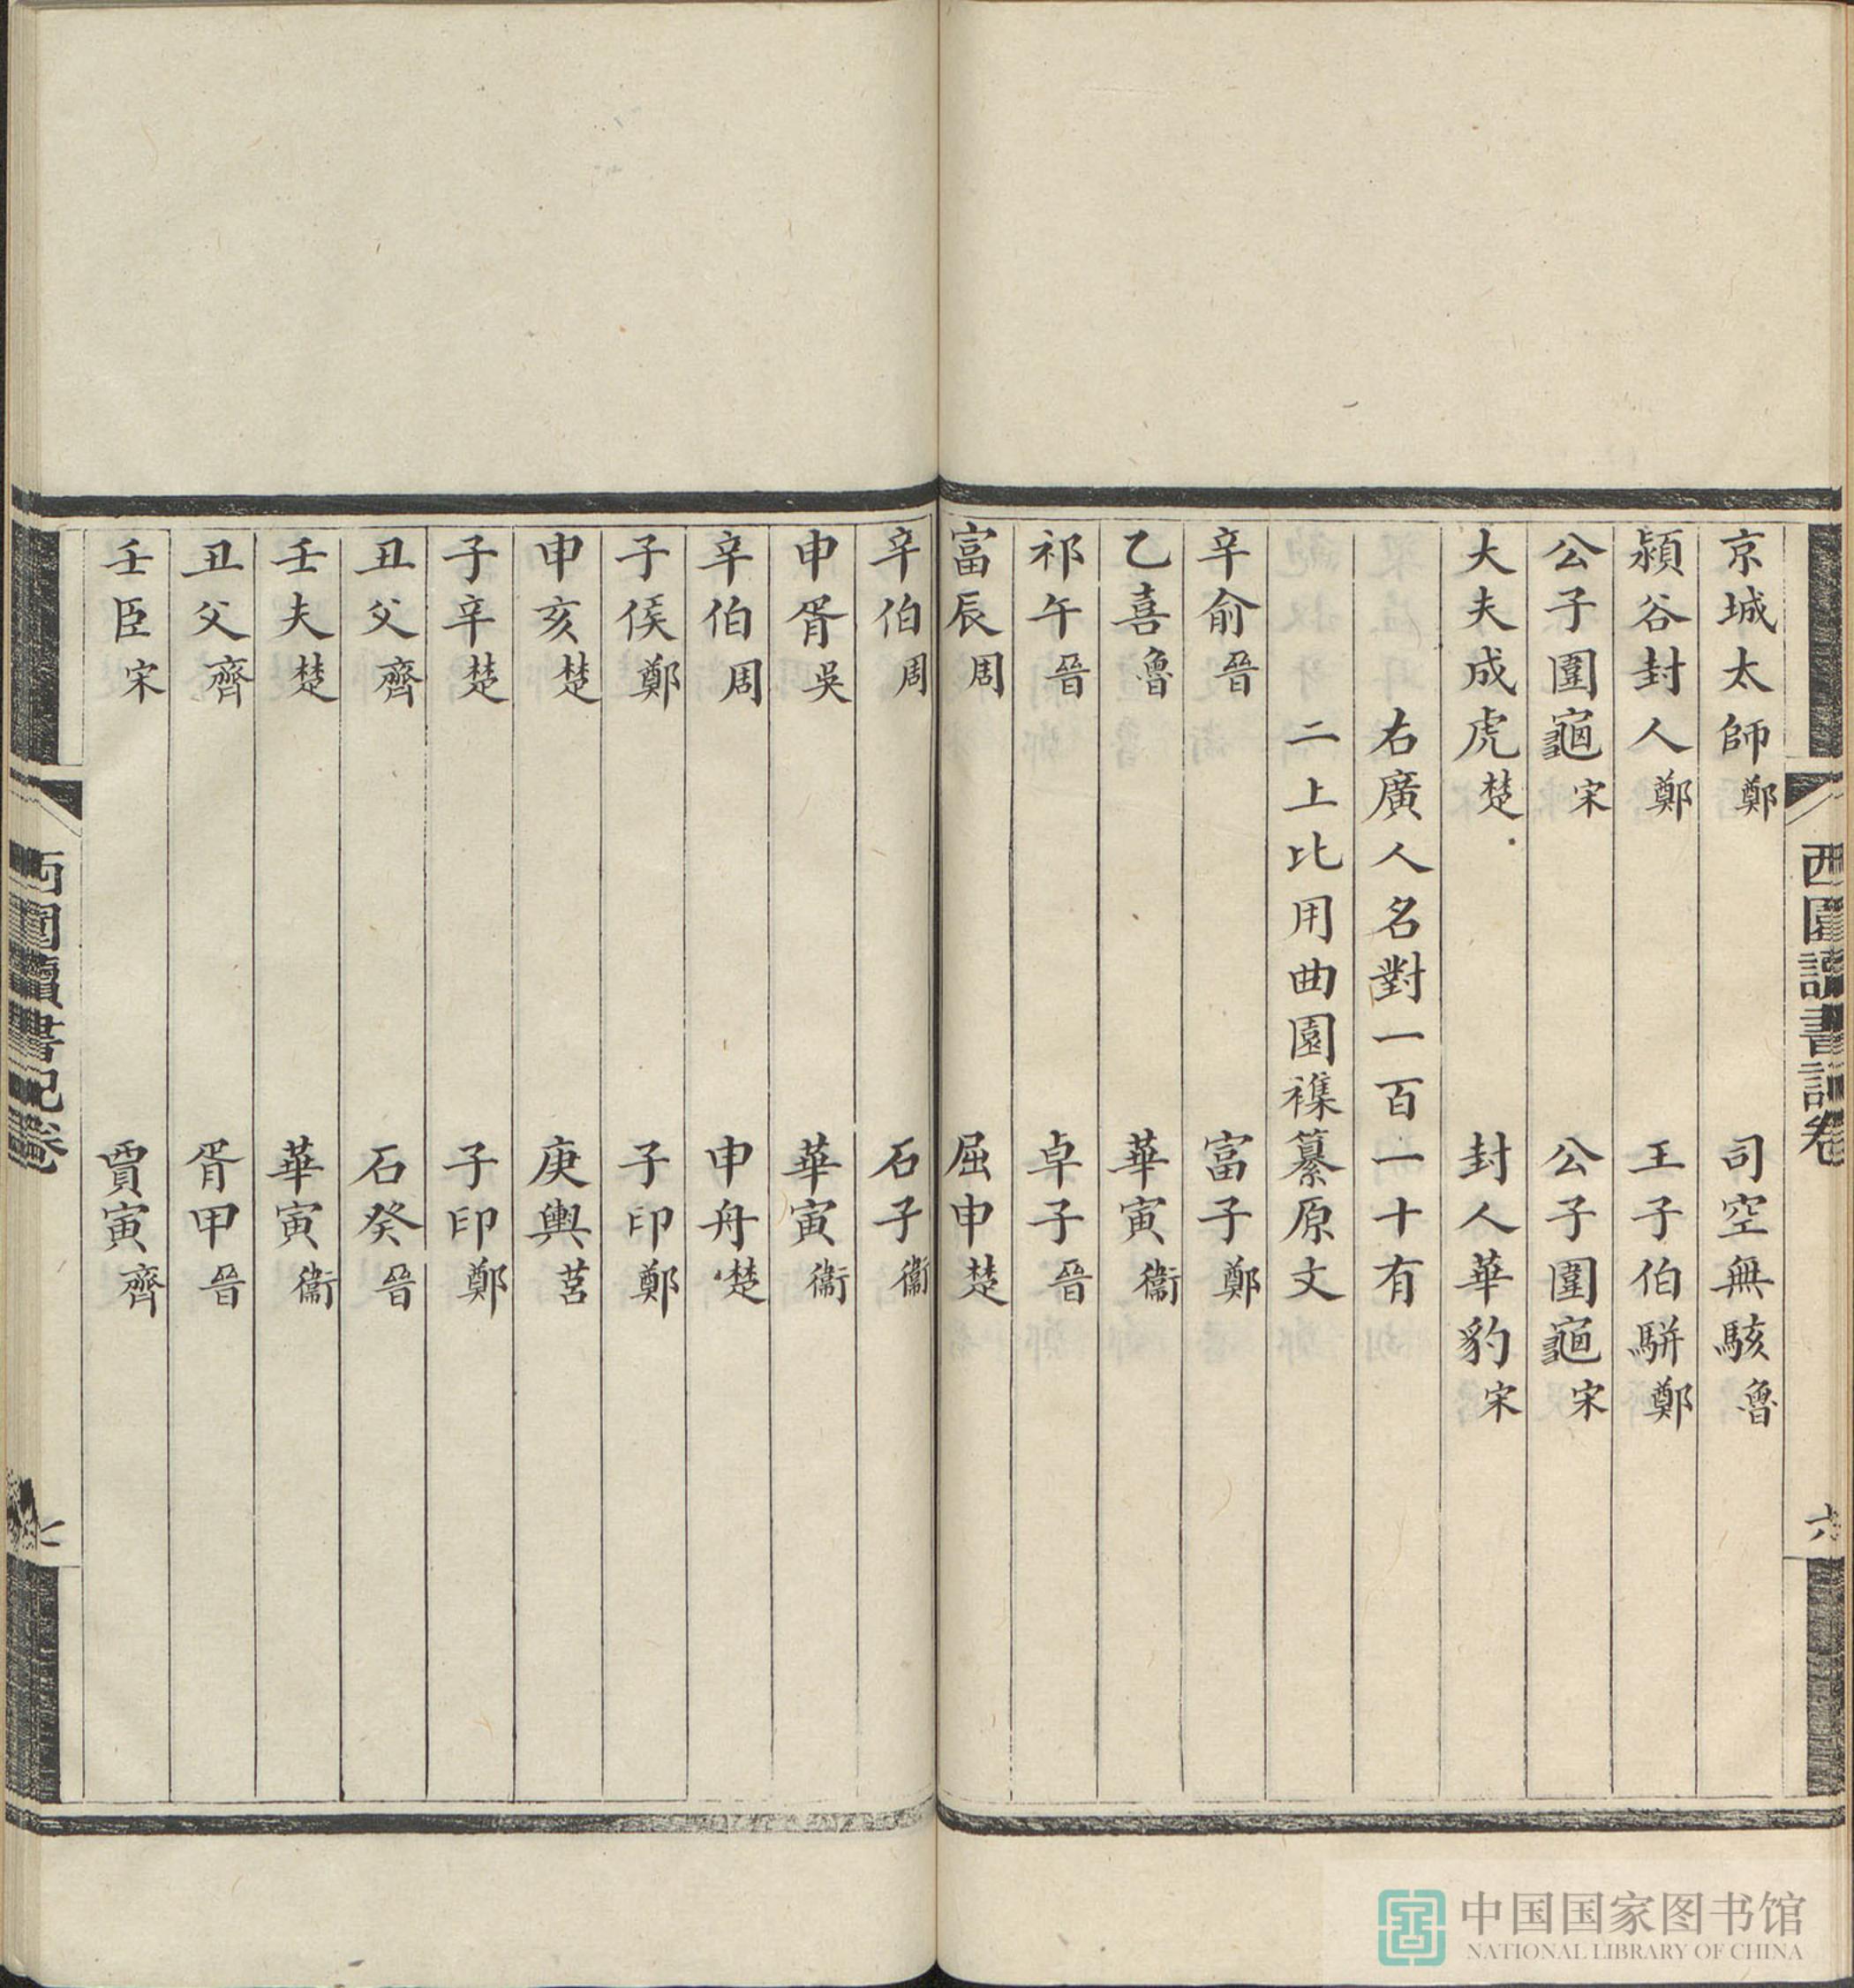 京城太師鄭 司空無駭魯
潁谷封人鄭 王子伯駢鄭
公子圍龜宋 公子圍龜宋
大夫成虎楚 封人華豹宋
右廣人名對一百一十有
二上比用曲園襍纂原文
辛俞晉 富子鄭
乙喜魯 華寅衞
祁午晉 卓子晉
富辰周 屈申楚
西園讀書記卷
六
辛伯周 石子衞
申胥吳 華寅衞
辛伯周 申舟楚
子侯鄭 子印鄭
申亥楚 庚輿莒
子辛楚 子印鄭
丑父齊 石癸晉
壬夫楚 華寅衞
丑父齊 胥甲晉
壬臣宋 賈寅齊
西園讀書記卷
七
中国国家图书馆
NATIONAL LIBRARY OF CHINA